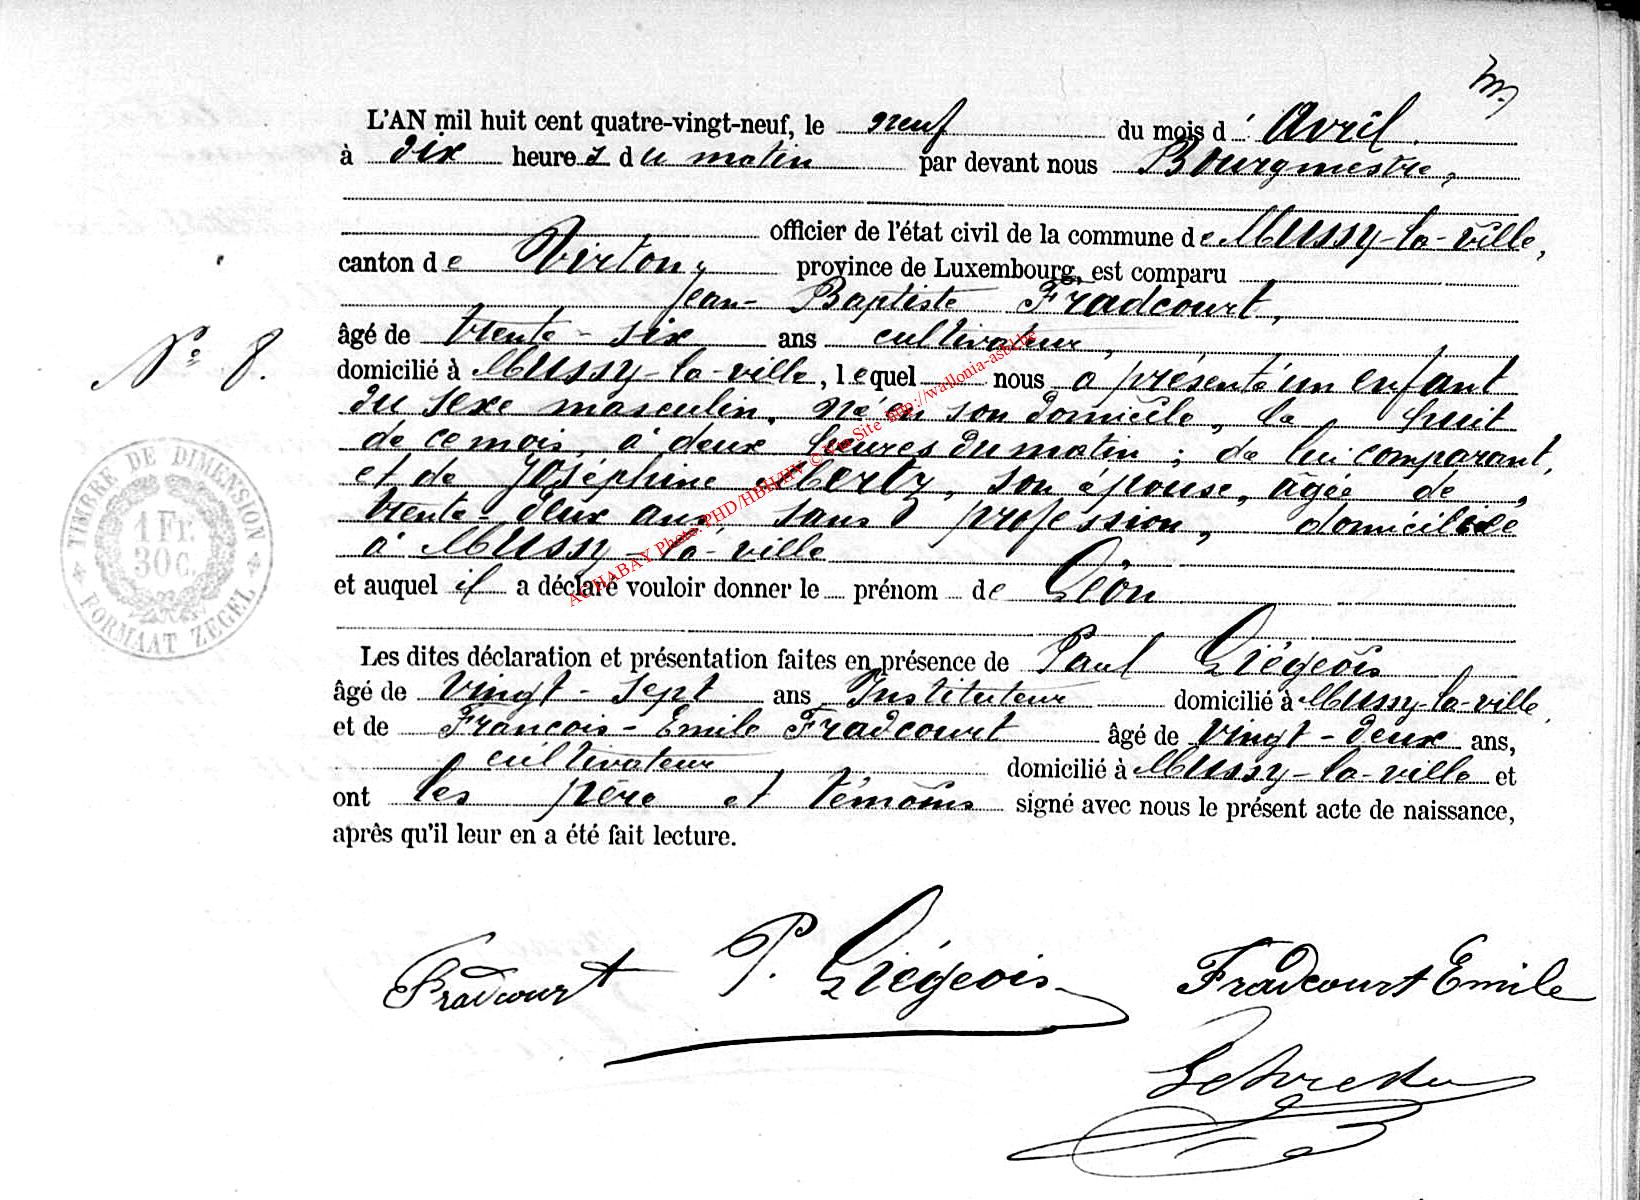 L'AN mil huit cent quatre-vingt-neuf, le neuf du mois d' Avril.
à dix heures du matin par devant nous Bourgmestre,
officier de l'état civil de la commune de Mussy-la-ville,
canton de Virton, province de Luxembourg, est comparu
Jean-Baptiste Fradcourt,
âgé de trente-six ans cultivateur,
N° 8.
domicilié à Mussy-la-ville, lequel nous a présenté un enfant
du sexe masculin, né en son domicile, le huit
de ce mois, à deux heures du matin ; de lui comparant,
et de Joséphine Mertz, son épouse, âgée de
trente-deux ans sans profession, domiciliée
à Mussy-la-ville
et auquel il a déclaré vouloir donner le prénom de Léon
Les dites déclaration et présentation faites en présence de Paul Liégeois
âgé de vingt-sept ans Instituteur domicilié à Mussy-la-ville,
et de François-Emile Fradcourt âgé de vingt-deux ans,
cultivateur domicilié à Mussy-la-ville et
ont les père et témoins signé avec nous le présent acte de naissance,
après qu'il leur en a été fait lecture.
Fradcourt P. Liégeois Fradcourt Emile
TIMBRE DE DIMENSION
1 Fr.
30 C.
FORMAAT ZEGEL
AGHABAY Photo: PHD/HBH/HV © Via Site http://wallonia-asbl.be